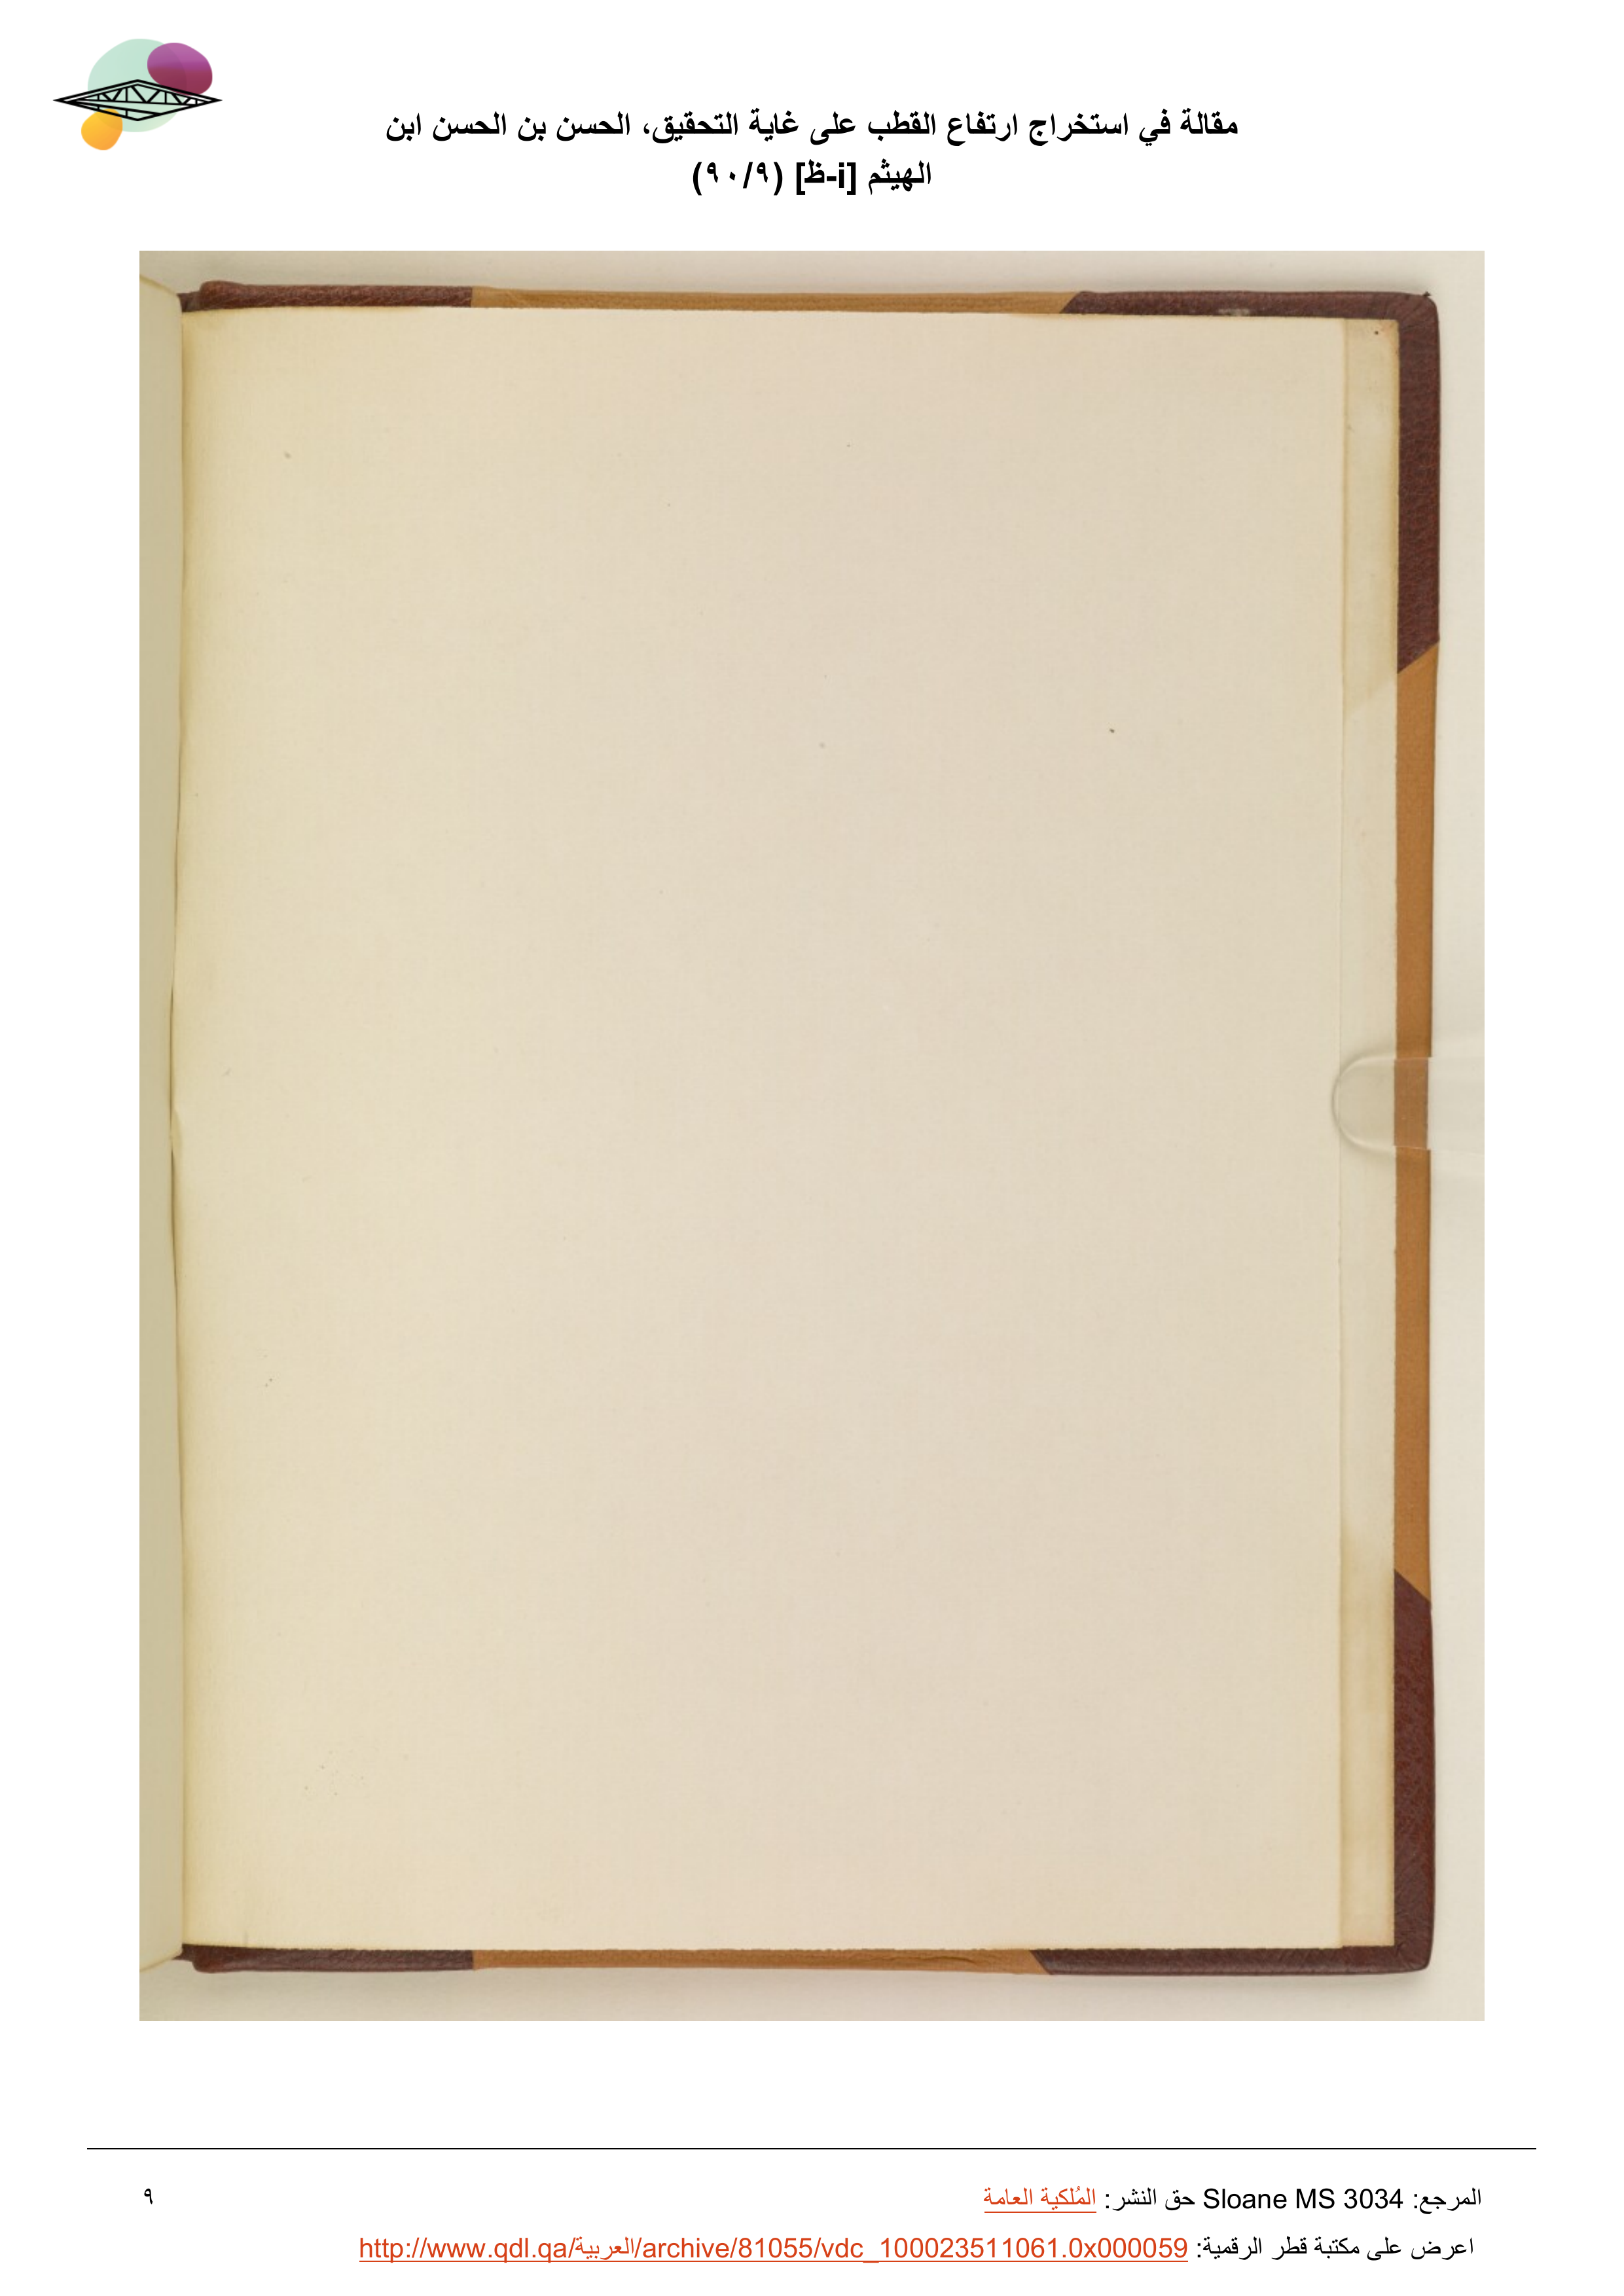 مقالة في استخراج ارتفاع القطب على غاية التحقيق، الحسن بن الحسن ابن
الهيثم [i-ظ] (٩٠/٩)
المرجع: Sloane MS 3034 حق النشر: المُلكية العامة
٩
اعرض على مكتبة قطر الرقمية: http://www.qdl.qa/العربية/archive/81055/vdc_100023511061.0x000059